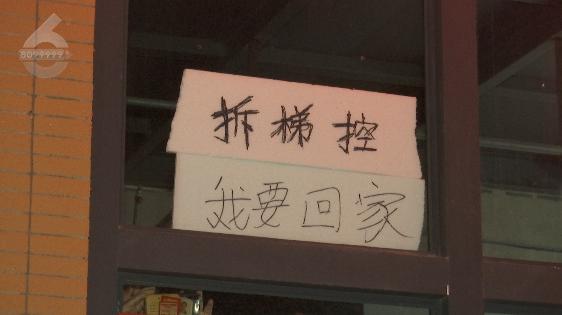 8099999
拆梯控
我要回家